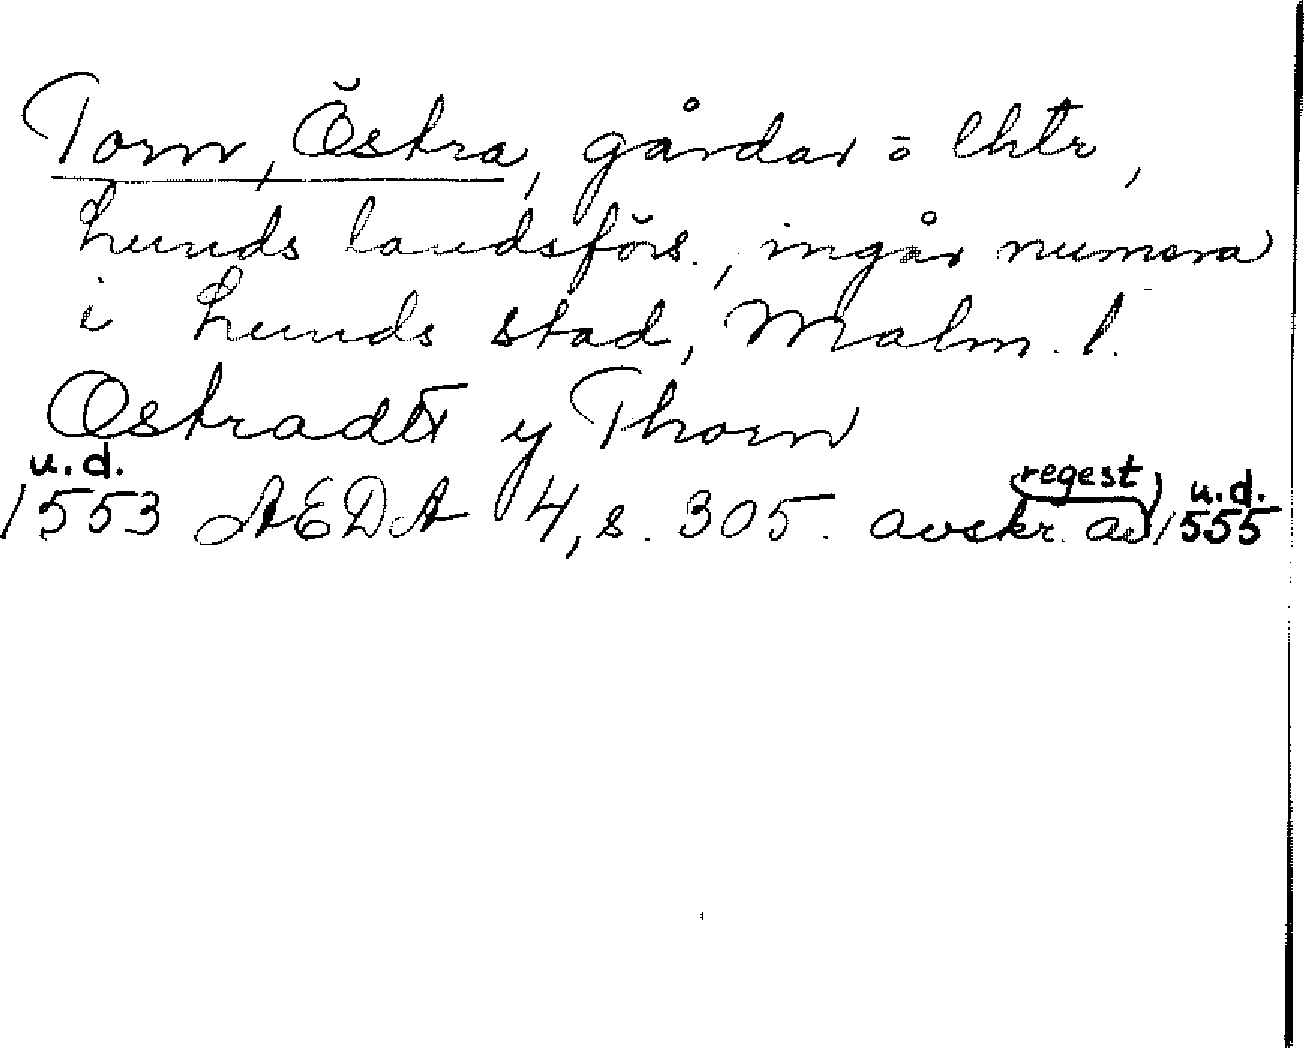 Torn, Östra, gårdar o lhtr,
Lunds landsförs., ingår numera
i Lunds stad, Malm. l.
Ostradt y Thorn
u.d. regest u.d.
1553 AEDA 4, s. 305. avskr. av 1555